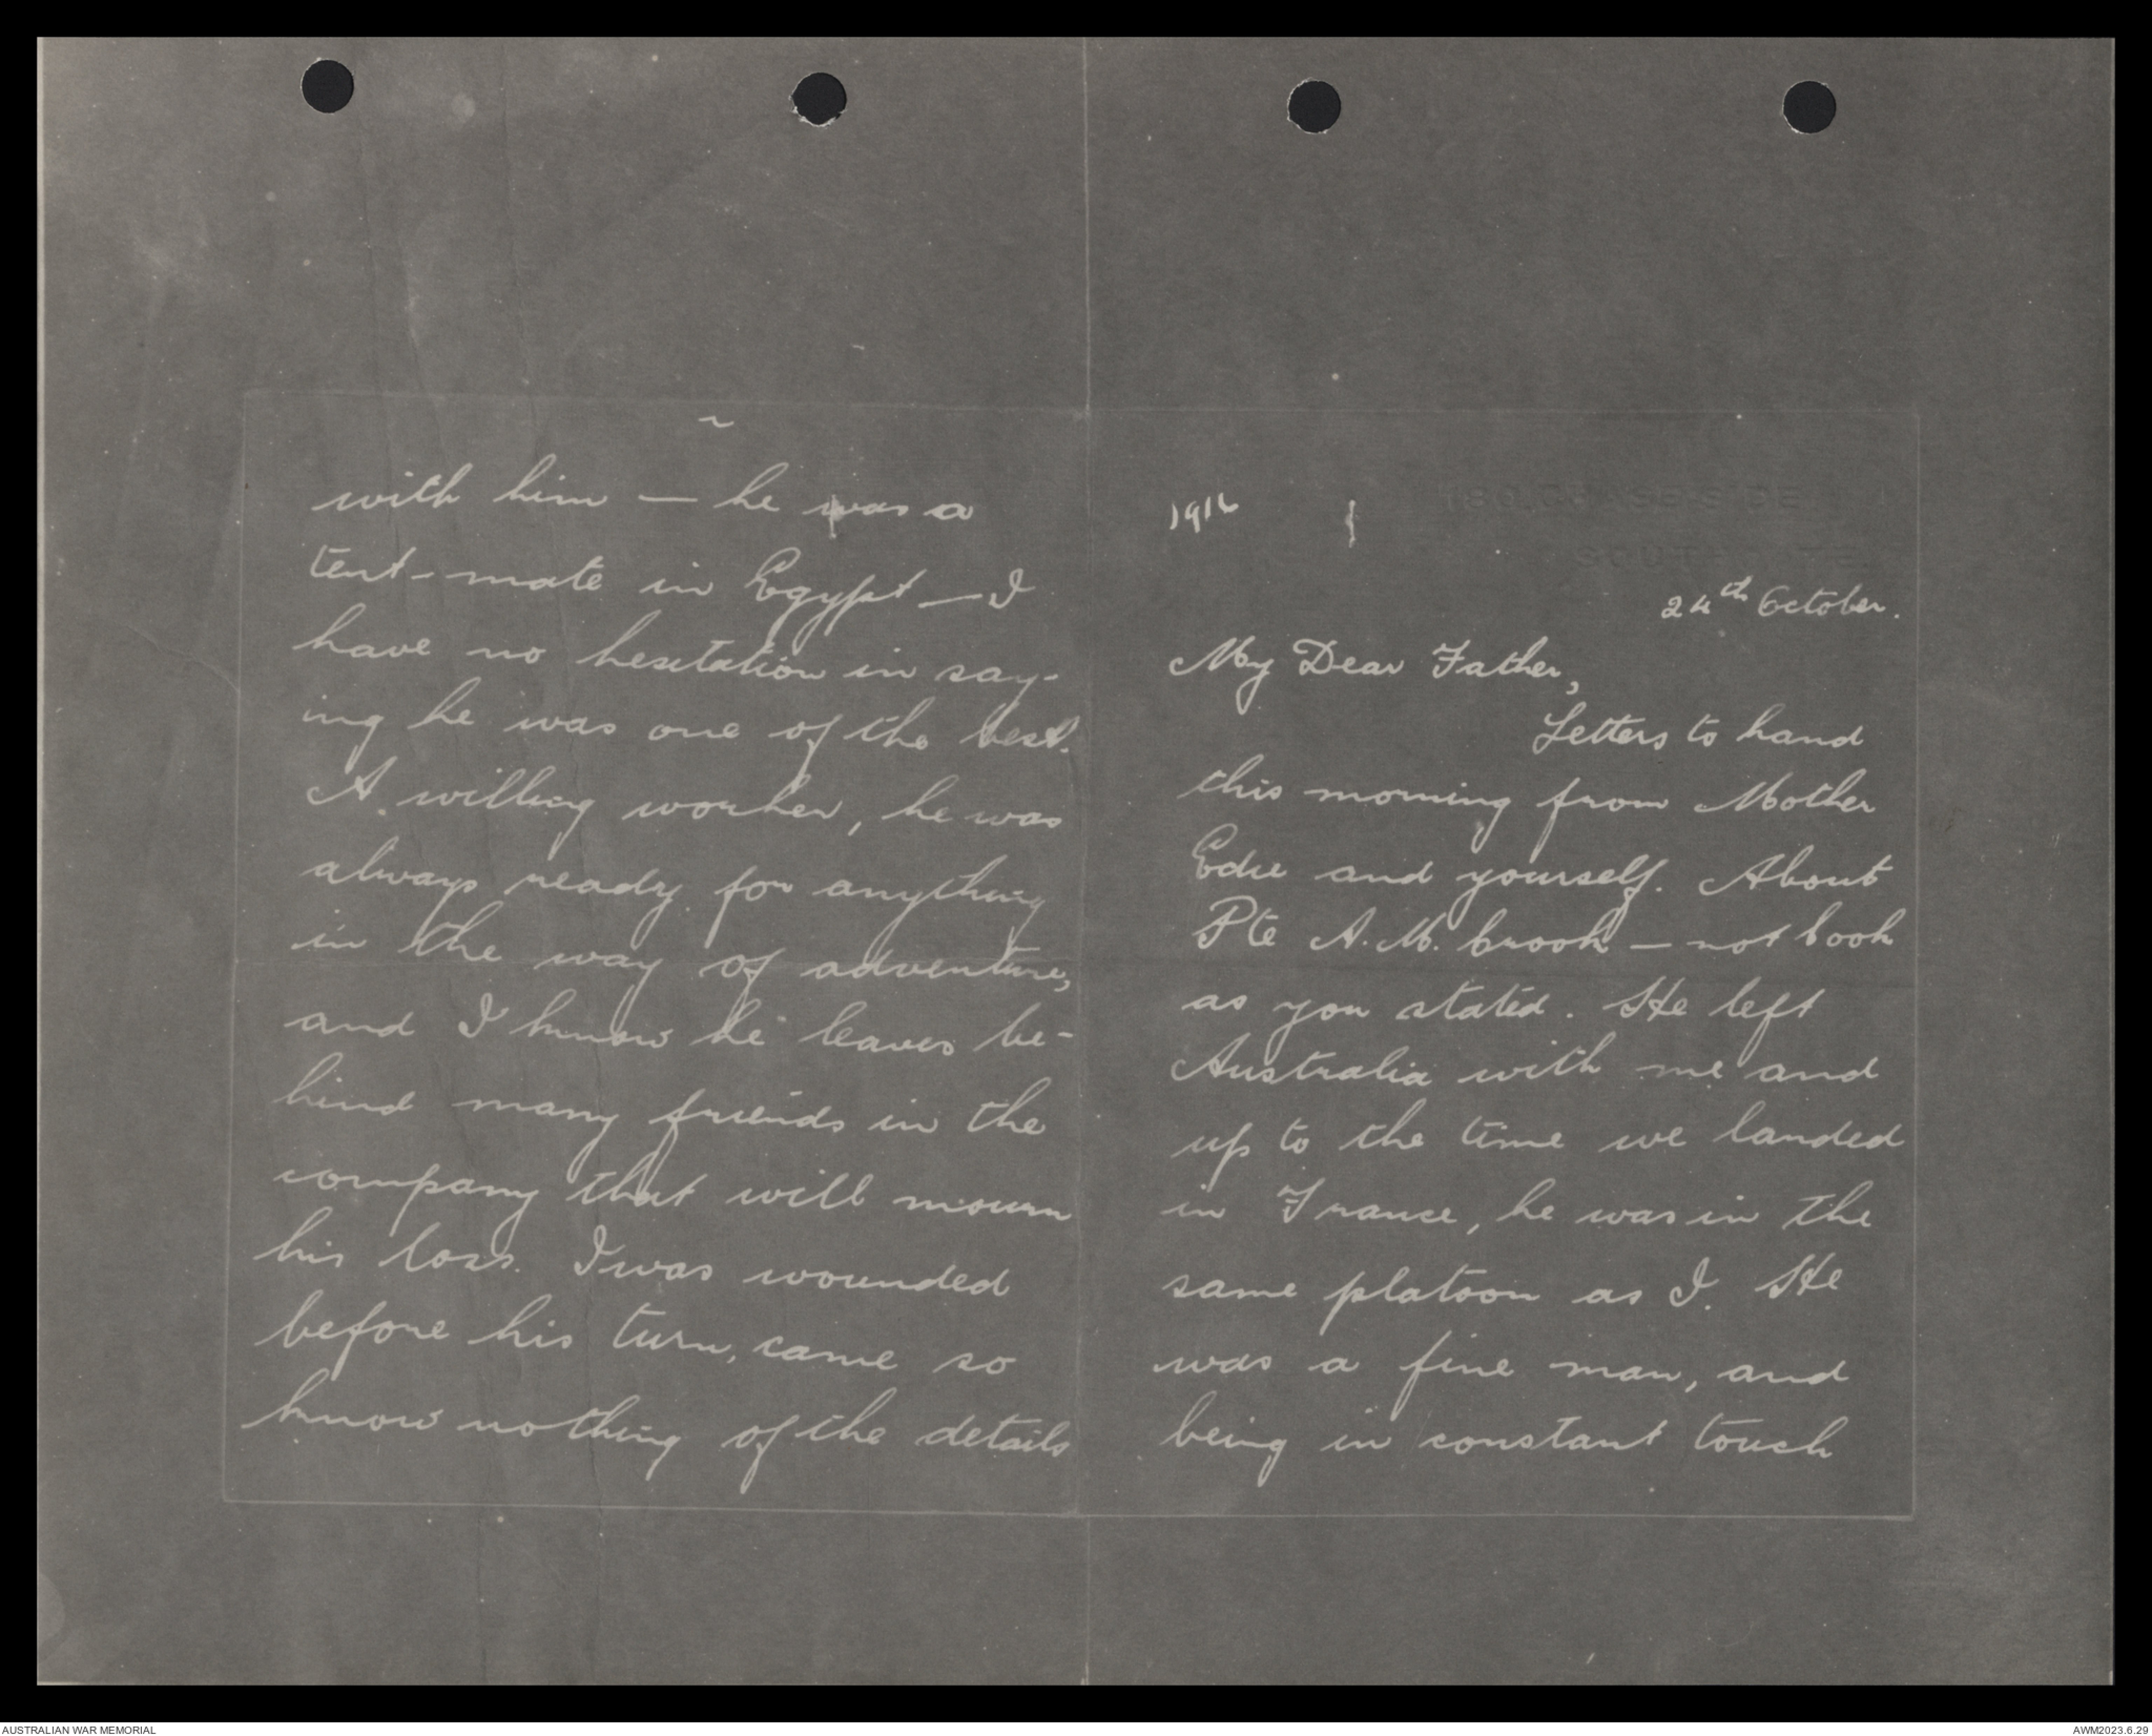 1916
24th October.
My Dear Father,
Letters to hand
this morning from Mother
Edie and yourself. About
Pte A. M. Crook — not Cook
as you stated. He left
Australia with me and
up to the time we landed
in France, he was in the
same platoon as I. He
was a fine man, and
being in constant touch
with him — he was a
tent-mate in Egypt — I
have no hesitation in say-
ing he was one of the best.
A willing worker, he was
always ready for anything
in the way of adventure,
and I know he leaves be-
hind many friends in the
company that will mourn
his loss. I was wounded
before his turn, came so
know nothing of the details
AUSTRALIAN WAR MEMORIAL
AWM2023.6.29